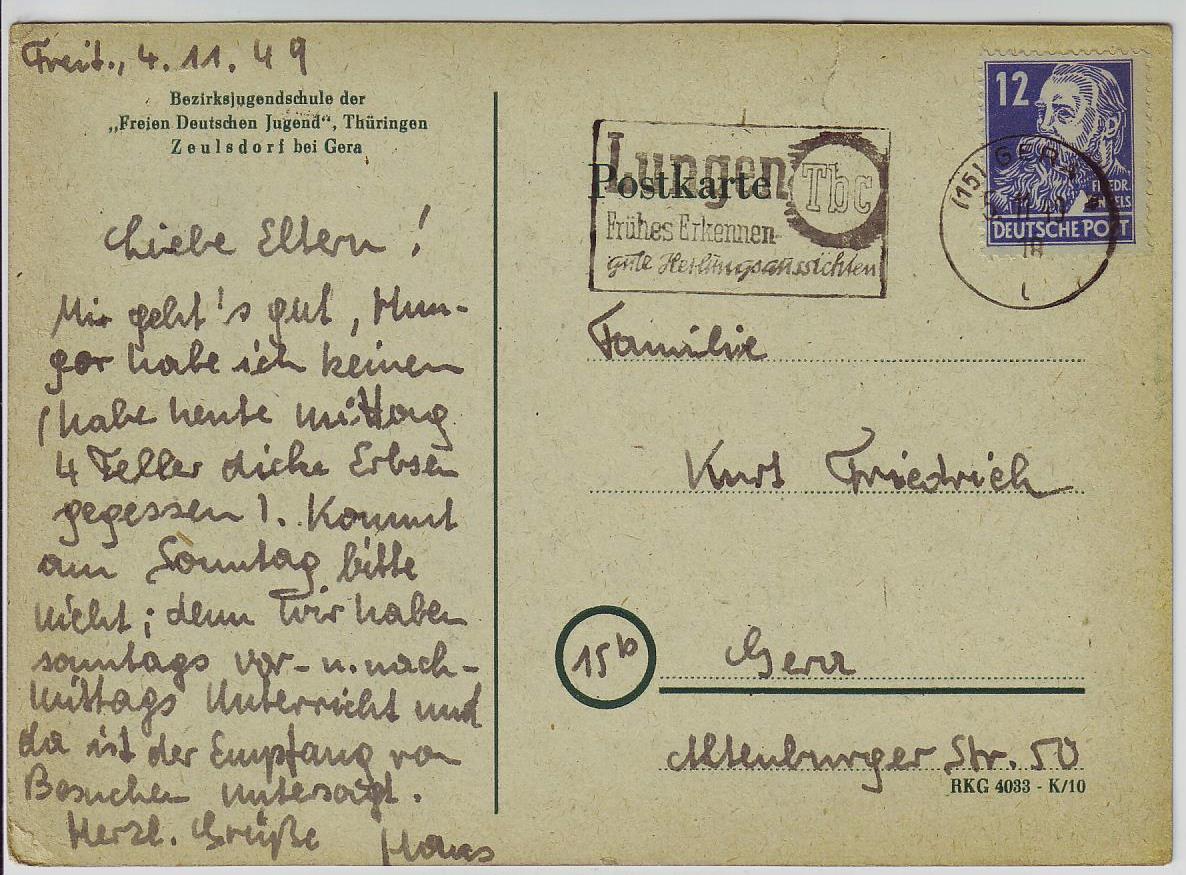 Freit., 4.11.49
Bezirksjugendschule der
„Freien Deutschen Jugend", Thüringen
Zeulsdorf bei Gera
Liebe Eltern!
Mir geht's gut, Hun-
ger habe ich keinen
(habe heute mittag
4 Teller dicke Erbsen
gegessen). Kommt
am Sonntag bitte
nicht; denn wir haben
sonntags vor- u. nach-
mittags Unterricht und
da ist der Empfang von
Besuchen untersagt.
Herzl. Grüße Hans
12
FRIEDR. ENGELS
DEUTSCHE POST
(15) GERA
18
Lungen Tbc
Postkarte
Frühes Erkennen
gute Heilungsaussichten
Familie
Kurt Friedrich
15b
Gera
Altenburger Str. 50
RKG 4033 - K/10